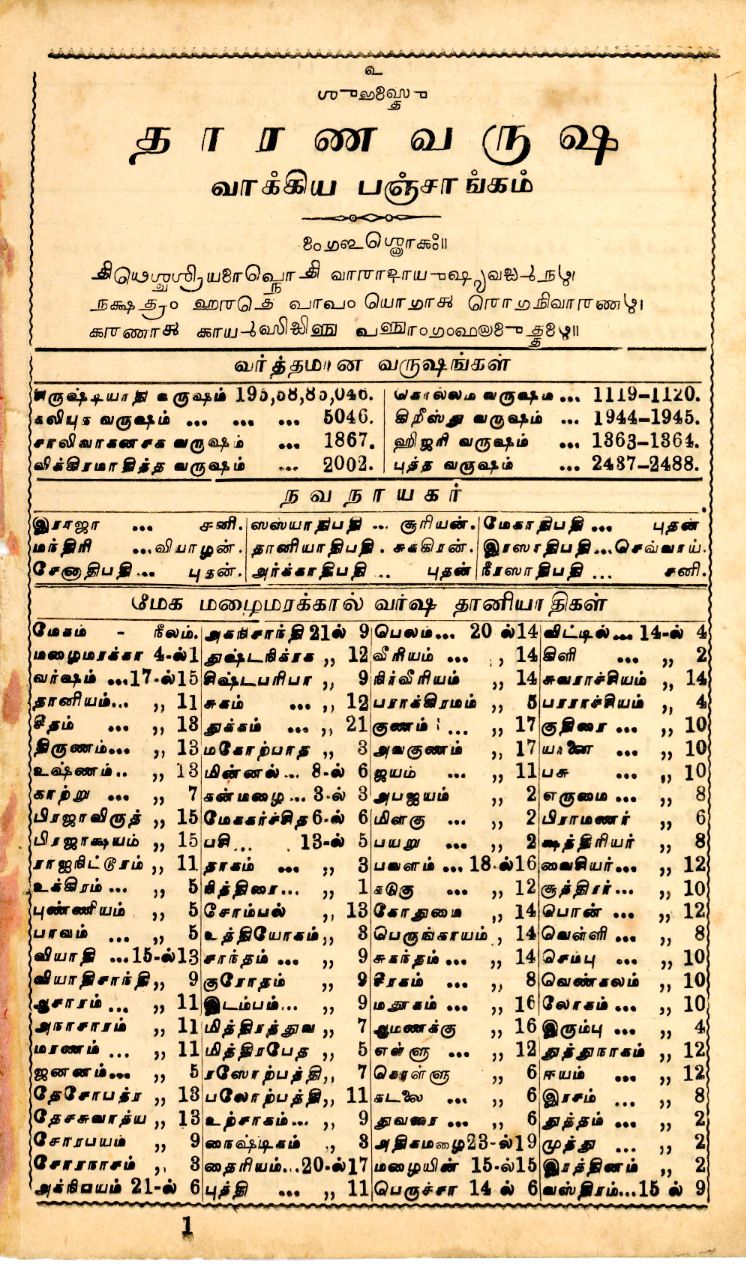 உ
தாரண வருஷ
வாக்கிய பஞ்சாங்கம்
வர்த்தமான வருஷங்கள்
வருஷம் 195,58,85,046. கொல்லம வருஷம ... 1119–1120.
கலியுக வருஷம் ... ... ... 5046. கிறீஸ்து வருஷம் ... 1944–1945.
சாலிவாகனசக வருஷம் ... 1867. ஹிஜரி வருஷம் ... 1363–1364.
விக்கிரமாதித்த வருஷம் ... 2002. புத்த வருஷம் ... 2487–2488.
நவநாயகர்
இராஜா ... சனி. ஸஸ்யாதிபதி ... சூரியன். மேகாதிபதி ... புதன்
மந்திரி ... வியாழன். தானியாதிபதி . சுக்கிரன். இரஸாதிபதி...செவ்வாய்.
சேனாதிபதி... புதன். அர்க்காதிபதி .. புதன் நீரஸாதிபதி ... சனி.
மேக மழைமரக்கால் வர்ஷ தானியாதிகள்
மேகம் - நீலம். அகநிசாந்தி 21ல் 9 பெலம்... 20 ல்14 விட்டில்... 14-ல் 4
மழைமரக்கா 4-ல்1 துஷ்டநிக்ரக ,, 12 வீரியம் ... ,, 14 கிளி ... ,, 2
வர்ஷம் ...17-ல்15 சிஷ்டபரிபா ,, 9 நிர்வீரியம் ,, 14 சுவராச்சியம் ,, 14
தானியம்... ,, 11 சுகம் ... ,, 12 பராக்கிரமம் ,, 5 பரராச்சியம் ,, 4
சீதம் ... ,, 13 துக்கம் ... ,, 21 குணம் ... ,, 17 குதிரை ... ,, 10
திருணம்... ,, 13 மகோற்பாத ,, 3 அவகுணம் ,, 17 யானை ... ,, 10
உஷ்ணம்.. ,, 13 மின்னல்... 8-ல் 6 ஜயம் ... ,, 11 பசு ... ,, 10
காற்று ... ,, 7 கன்மழை ... 3-ல் 3 அபஜயம் ,, 2 எருமை ... ,, 8
பிரஜாவிருத் ,, 15 மேககர்ச்சித 6-ல் 6 மிளகு ... ,, 2 பிராமணர் ,, 6
பிரஜாக்ஷயம் ,, 15 பசி .. 13-ல் 5 பயறு ... ,, 2 க்ஷத்திரியர் ,, 8
ராஜநிட்டூரம் ,, 11 தாகம் ... ,, 3 பவளம் ... 18-ல்16 வைசியர்... ,, 12
உக்கிரம்... ,, 5 நித்திரை... ,, 1 கடுகு ... ,, 12 சூத்திரர்... ,, 10
புண்ணியம் ,, 5 சோம்பல் ,, 13 கோதுமை ,, 14 பொன் ... ,, 12
பாவம் ... ,, 5 உத்தியோகம் ,, 3 பெருங்காயம் , 14 வெள்ளி ... ,, 8
வியாதி ...15-ல்13 சாந்தம் ... ,, 9 சுகந்தம் ... ,, 14 செம்பு ... ,, 10
வியாதிசாந்தி ,, 9 குரோதம் ,, 9 சீரகம் ... ,, 8 வெண்கலம் ,, 10
ஆசாரம்... ,, 11 இடம்பம்... ,, 9 மதூகம் ... ,, 16 லோகம் ... ,, 10
அநாசாரம் ,, 11 மித்திரத்துவ ,, 7 ஆமணக்கு ,, 16 இரும்பு ... ,, 4
மரணம் ... ,, 11 மித்திரபேத ,, 5 எள்ளு ... ,, 12 துத்துநாகம் ,, 12
ஜனனம்... ,, 5 ரஸோற்பத்தி ,, 7 கொள்ளு ,, 6 ஈயம் ... ,, 12
தேசோபத்ர ,, 13 பலோற்பத்தி ,, 11 கடலை ... ,, 6 இரசம் ... ,, 8
தேசசுவாத்ய ,, 13 உற்சாகம்... ,, 9 துவரை ... ,, 6 துத்தம் ... ,, 2
சோரபயம் ,, 9 நைஷ்டிகம் ,, 3 அதிகமழை23-ல்19 முத்து ... ,, 2
சோரநாசம் ,, 3 தைரியம்...20-ல்17 மழையின் 15-ல்15 இரத்தினம் ,, 2
அக்நிபயம் 21-ல் 6 புத்தி ... ,, 11 பெருச்சா 14 ல் 6 வஸ்திரம்...15 ல் 9
1